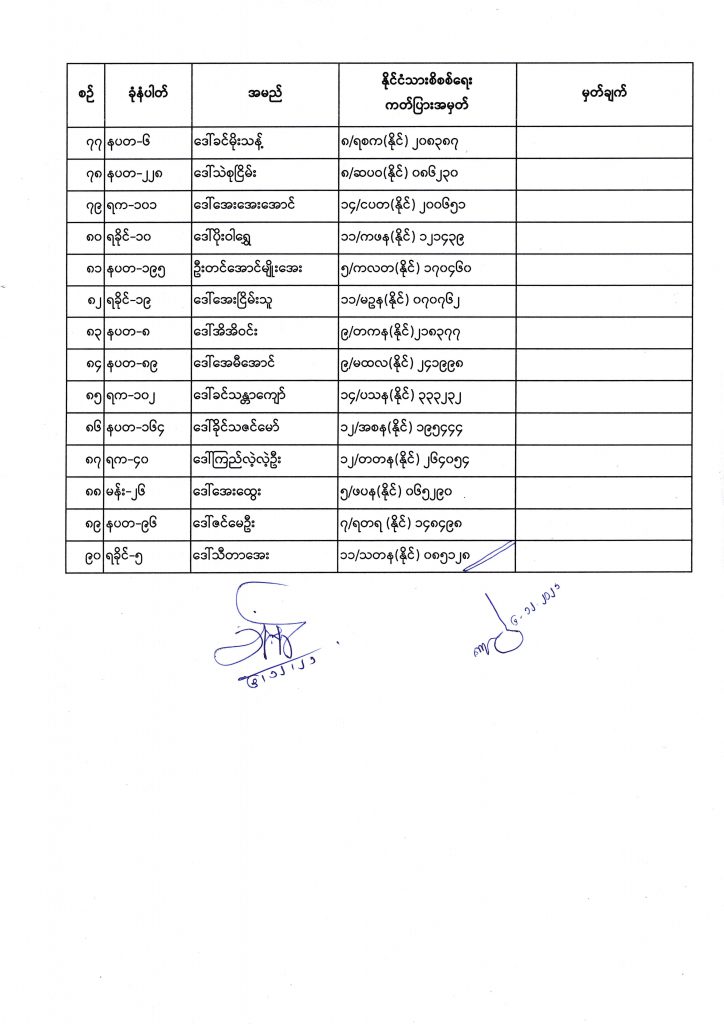 စဉ် ခုံနံပါတ် အမည် နိုင်ငံသားစိစစ်ရေး ကတ်ပြားအမှတ် မှတ်ချက်
၇၇ နပတ-၆ ဒေါ်ခင်မိုးသန့် ၈/ရစက(နိုင်) ၂၀၈၃၈၇
၇၈ နပတ-၂၂၈ ဒေါ်သဲစုငြိမ်း ၈/ဆပဝ(နိုင်) ၀၈၆၂၃၀
၇၉ ရက-၁၀၁ ဒေါ်အေးအေးအောင် ၁၄/ငပတ(နိုင်) ၂၀၀၆၅၁
၈၀ ရခိုင်-၁၀ ဒေါ်ပိုးဝါရွှေ ၁၁/ကဖန(နိုင်) ၁၂၁၄၃၉
၈၁ နပတ-၁၉၅ ဦးတင်အောင်မျိုးအေး ၅/ကလတ(နိုင်) ၁၇၀၄၆၀
၈၂ ရခိုင်-၁၉ ဒေါ်အေးငြိမ်းသူ ၁၁/မဥန(နိုင်) ၀၇၀၇၆၂
၈၃ နပတ-၈ ဒေါ်အိအိဝင်း ၉/တကန(နိုင်)၂၁၈၃၇၇
၈၄ နပတ-၈၉ ဒေါ်အေမီအောင် ၉/မထလ(နိုင်) ၂၄၁၉၉၈
၈၅ ရက-၁၀၂ ဒေါ်ခင်သန္တာကျော် ၁၄/ပသန(နိုင်) ၃၃၃၂၃၂
၈၆ နပတ-၁၆၄ ဒေါ်ခိုင်သဇင်မော် ၁၂/အစန(နိုင်) ၁၉၅၄၄၄
၈၇ ရက-၄၀ ဒေါ်ကြည်လဲ့လဲ့ဦး ၁၂/တတန(နိုင်) ၂၆၄၀၅၄
၈၈ မန်း-၂၆ ဒေါ်အေးထွေး ၅/ဖပန(နိုင်) ၀၆၅၂၉၀
၈၉ နပတ-၉၆ ဒေါ်ဇင်မေဦး ၇/ရတရ (နိုင်) ၁၄၈၄၉၈
၉၀ ရခိုင်-၅ ဒေါ်သီတာအေး ၁၁/သတန(နိုင်) ၀၈၅၁၂၈